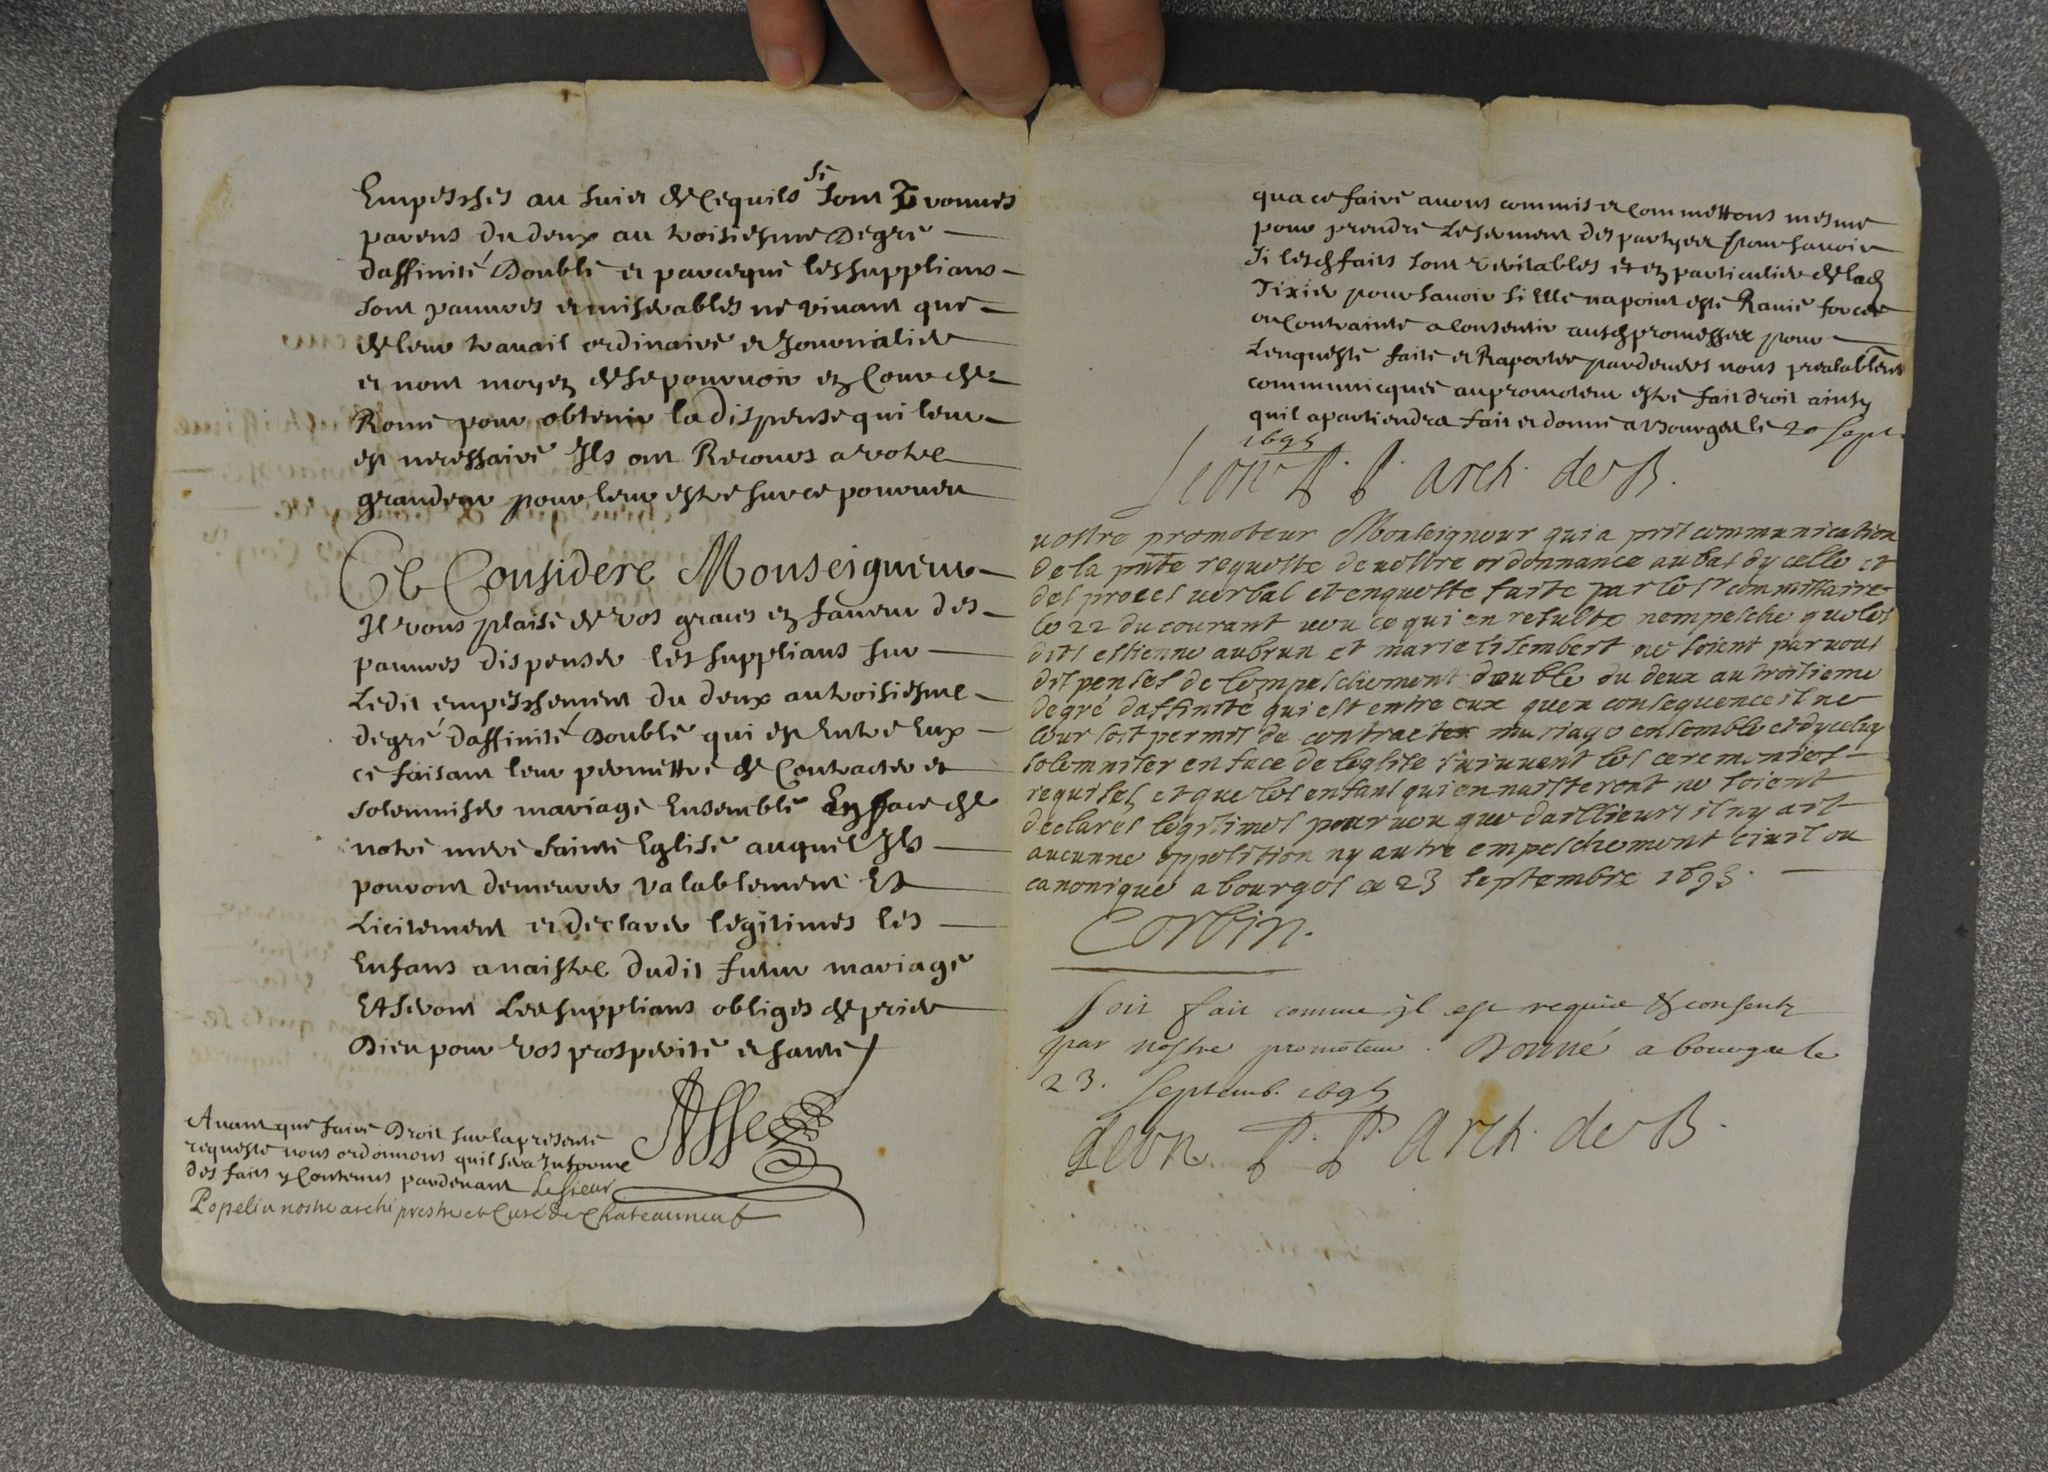 Empesches au suiet de ce quils si sont trouvues
parens du deux au troisiesme Degré
daffinité Doublé et parceque les supplians
sont pauvres et miserables ne vivant que
de leur travail ordinaire et Journalier
et nont moyen de se pourvoir en Cour de
Rome pour obtenir la dispense qui leur
est necessaire Ils ont Recours a votre
grandeur pour leur estre sur ce pourveu
Ce Consideré Monseigneur
Il vous plaise de vos graces en faveur des
pauvres dispenser les supplians sur
Ledit empeschement du deux au troisiesme
degré daffinité Doublé qui est Entre Eux
ce faisant leur permettre de Contracter et
solemniser mariage Ensemble En face de
notre mere sainte Eglise auquel Ils
pouront demeurer valablement Et
Licitement et declarer legitimes les
Enfans a naistre dudit futur mariage
Et seront Les supplians obliges de prier
Dieu pour vos prosperité et santé
Asse
Avant que faire Droit sur la presente
requeste nous ordonnons quil sera Informé
des faits y Contenus pardevant Le sieur
Popelin nostre archiprestre et Curé de Chateauneuf
qua ce faire avons commis et Commettons mesme
pour prendre Le serment des partyes pour savoir
si lesd faits sont veritables et en particulier de lad
Tixier pour savoir si Elle na point esté Ravie forcée
ou Contrainte a Consentir ausd promesses pour
Lenqueste faite et Raportee pardevers nous prealablemt
communicquée au promoteur estre fait droit ainsy
quil apartiendra fait et donné a Bourges le 20 sept
1693
Leon P. P. arch. de B.
vostre promoteur Monseigneur qui a prit communication
de la pnte requeste de vostre ordonnance au bas dycelle et
des proces verbal et enqueste faite par le sr commissaire
le 22 du courant veu ce qui en resulte nempesche que les
dits estienne aubrun et marie lisembert ne soient par vous
dispenses de lempeschement double du deux au troisieme
degré daffinité qui est entre eux quen consequence il ne
leur soit permis de contracter mariage ensemble et dyceluy
solemniser en face de leglise suivant les ceremonies
requises et que les enfans qui en naisteront ne soient
declares legitimes pourveu que dailleurs il ny ait
aucunne opposition ny autre empeschement civil ou
canonique a bourges ce 23 septembre 1693.
Corbin.
soit fait comme il est requis & consenti
par nostre promoteur. Donné a bourges le
23. septemb. 1693
Leon P. P. arch. de B.